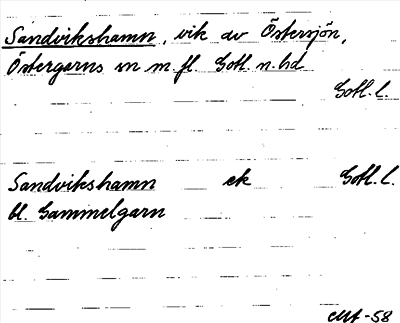 Sandvikshamn, vik av Östersjön,
Östergarns sn m. fl. Gotl. n. hd
Gotl. l.
Sandvikshamn ek Gotl. l.
bl. Gammelgarn
-58